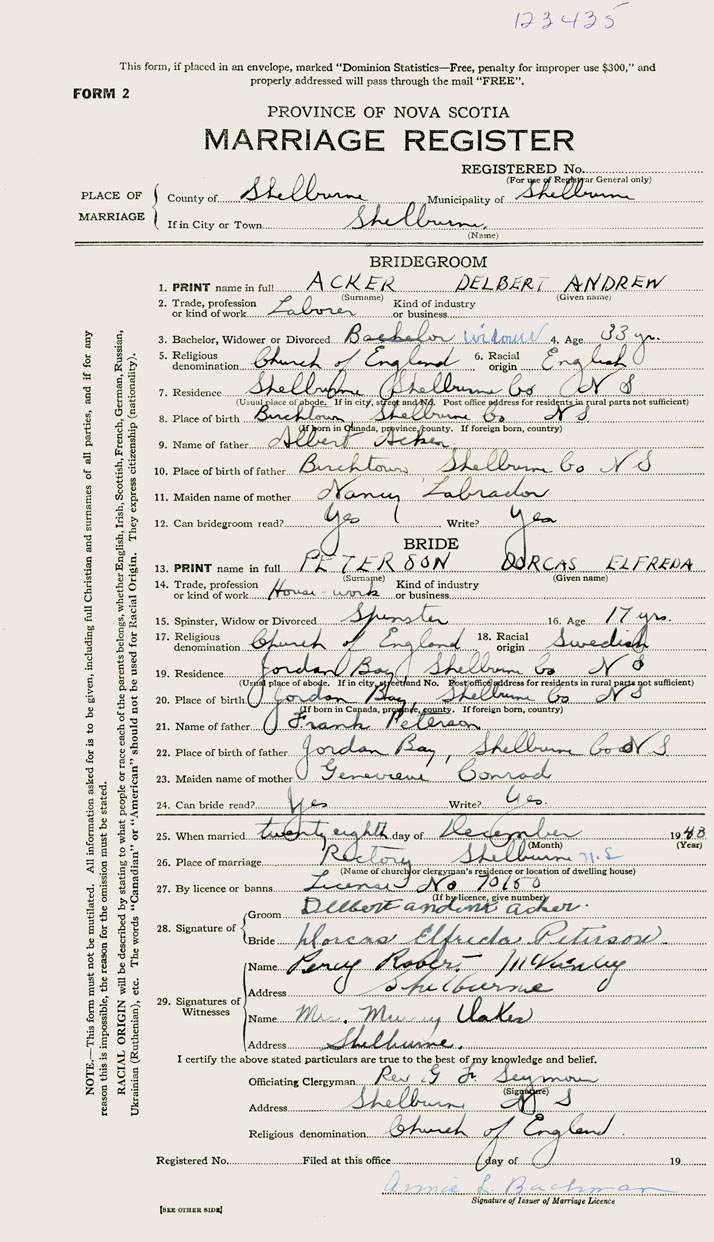 123435
This form, if placed in an envelope, marked "Dominion Statistics—Free, penalty for improper use $300," and
properly addressed will pass through the mail "FREE".
FORM 2
PROVINCE OF NOVA SCOTIA
MARRIAGE REGISTER
REGISTERED No.
(For use of Registrar General only)
PLACE OF MARRIAGE
County of Shelburne Municipality of Shelburne
If in City or Town Shelburne.
(Name)
BRIDEGROOM
1. PRINT name in full ACKER DELBERT ANDREW
(Surname) (Given name)
2. Trade, profession or kind of work Laborer Kind of industry or business
3. Bachelor, Widower or Divorced Bachelor Widower 4. Age 33 yr.
5. Religious denomination Church of England 6. Racial origin English
7. Residence Shelburne Shelburne Co N S
(Usual place of abode. If in city, street and No. Post office address for residents in rural parts not sufficient)
8. Place of birth Birchtown Shelburne Co N S
(If born in Canada, province, county. If foreign born, country)
9. Name of father Albert Acker
10. Place of birth of father Birchtown Shelburne Co N S
11. Maiden name of mother Nancy Labrador
12. Can bridegroom read? Yes Write? Yes
BRIDE
13. PRINT name in full PETERSON DORCAS ELFREDA
(Surname) (Given name)
14. Trade, profession or kind of work House-work Kind of industry or business
15. Spinster, Widow or Divorced Spinster 16. Age 17 yrs.
17. Religious denomination Church of England 18. Racial origin Swedish
19. Residence Jordan Bay Shelburne Co N S
(Usual place of abode. If in city, street and No. Post office address for residents in rural parts not sufficient)
20. Place of birth Jordan Bay, Shelburne Co N S
(If born in Canada, province, county. If foreign born, country)
21. Name of father Frank Peterson
22. Place of birth of father Jordan Bay, Shelburne Co N S
23. Maiden name of mother Genevieve Conrad
24. Can bride read? Yes Write? Yes.
25. When married twenty eighth day of December 1943
(Month) (Year)
26. Place of marriage Rectory Shelburne N.S
(Name of church or clergyman's residence or location of dwelling house)
27. By licence or banns License No 70150
(If by licence, give number)
28. Signature of
Groom Delbert Acker.
Bride Dorcas Elfreda Peterson.
29. Signatures of Witnesses
Name Percy Robert
Address Shelburne
Name Mrs. Murray Oakes
Address Shelburne.
I certify the above stated particulars are true to the best of my knowledge and belief.
Officiating Clergyman Rev G Fr Seymour
(Signature)
Address Shelburne N S
Religious denomination Church of England.
Registered No. Filed at this office day of 19
Annie L. Bachman
Signature of Issuer of Marriage Licence
[SEE OTHER SIDE]
NOTE.—This form must not be mutilated. All information asked for is to be given, including full Christian and surnames of all parties, and if for any
reason this is impossible, the reason for the omission must be stated.
RACIAL ORIGIN will be described by stating to what people or race each of the parents belongs, whether English, Irish, Scottish, French, German, Russian,
Ukrainian (Ruthenian), etc. The words "Canadian" or "American" should not be used for Racial Origin. They express citizenship (nationality).